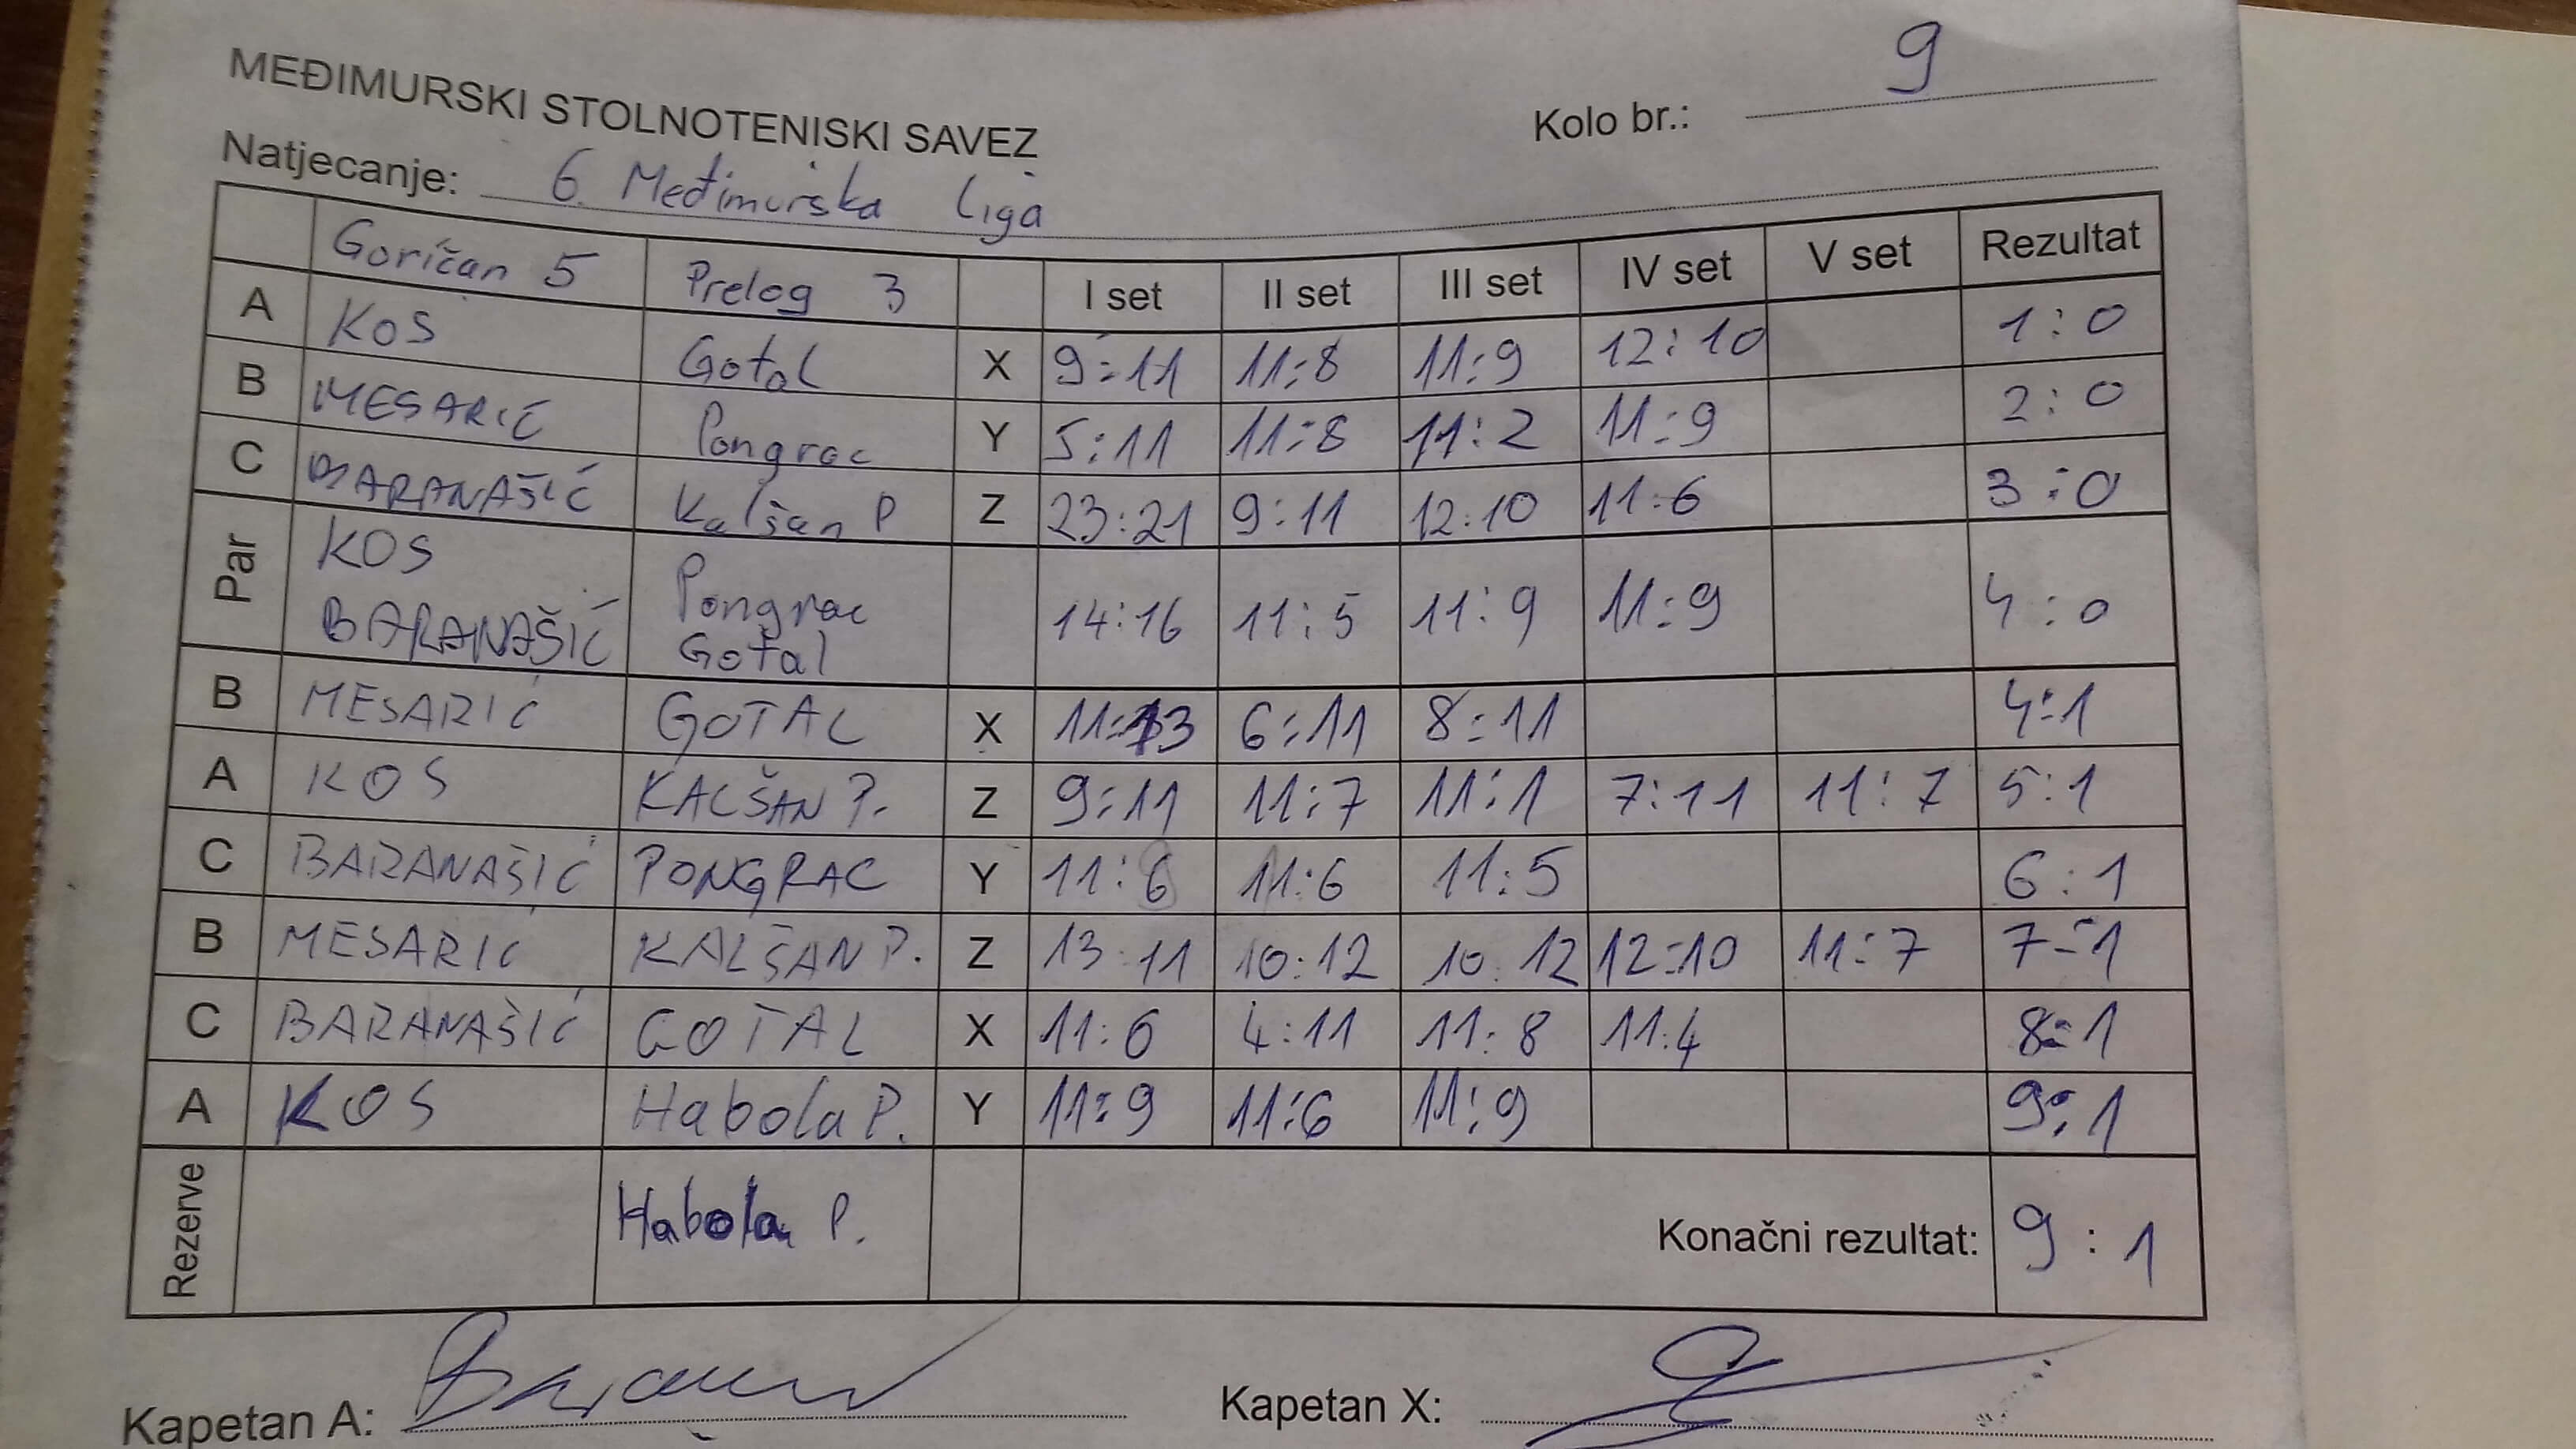 MEĐIMURSKI STOLNOTENISKI SAVEZ
Kolo br.: 9
Natjecanje: 6. Međimurska liga
Goričan 5 Prelog 3 I set II set III set IV set V set Rezultat
A KOS Gotal X 9:11 11:8 11:9 12:10 1:0
B MESARIĆ Pongrac Y 5:11 11:8 11:2 11:9 2:0
C BARANAŠIĆ Kalšan P Z 23:21 9:11 12:10 11:6 3:0
Par KOS BARANAŠIĆ Pongrac Gotal 14:16 11:5 11:9 11:9 4:0
B MESARIĆ GOTAL X 11:13 6:11 8:11 4:1
A KOS KALŠAN P. Z 9:11 11:7 11:1 7:11 11:7 5:1
C BARANAŠIĆ PONGRAC Y 11:6 11:6 11:5 6:1
B MESARIĆ KALŠAN P. Z 13:11 10:12 10:12 12:10 11:7 7:1
C BARANAŠIĆ GOTAL X 11:6 4:11 11:8 11:4 8:1
A KOS Habola P. Y 11:9 11:6 11:9 9:1
Rezerve Habola P. Konačni rezultat: 9:1
Kapetan A: Kapetan X: